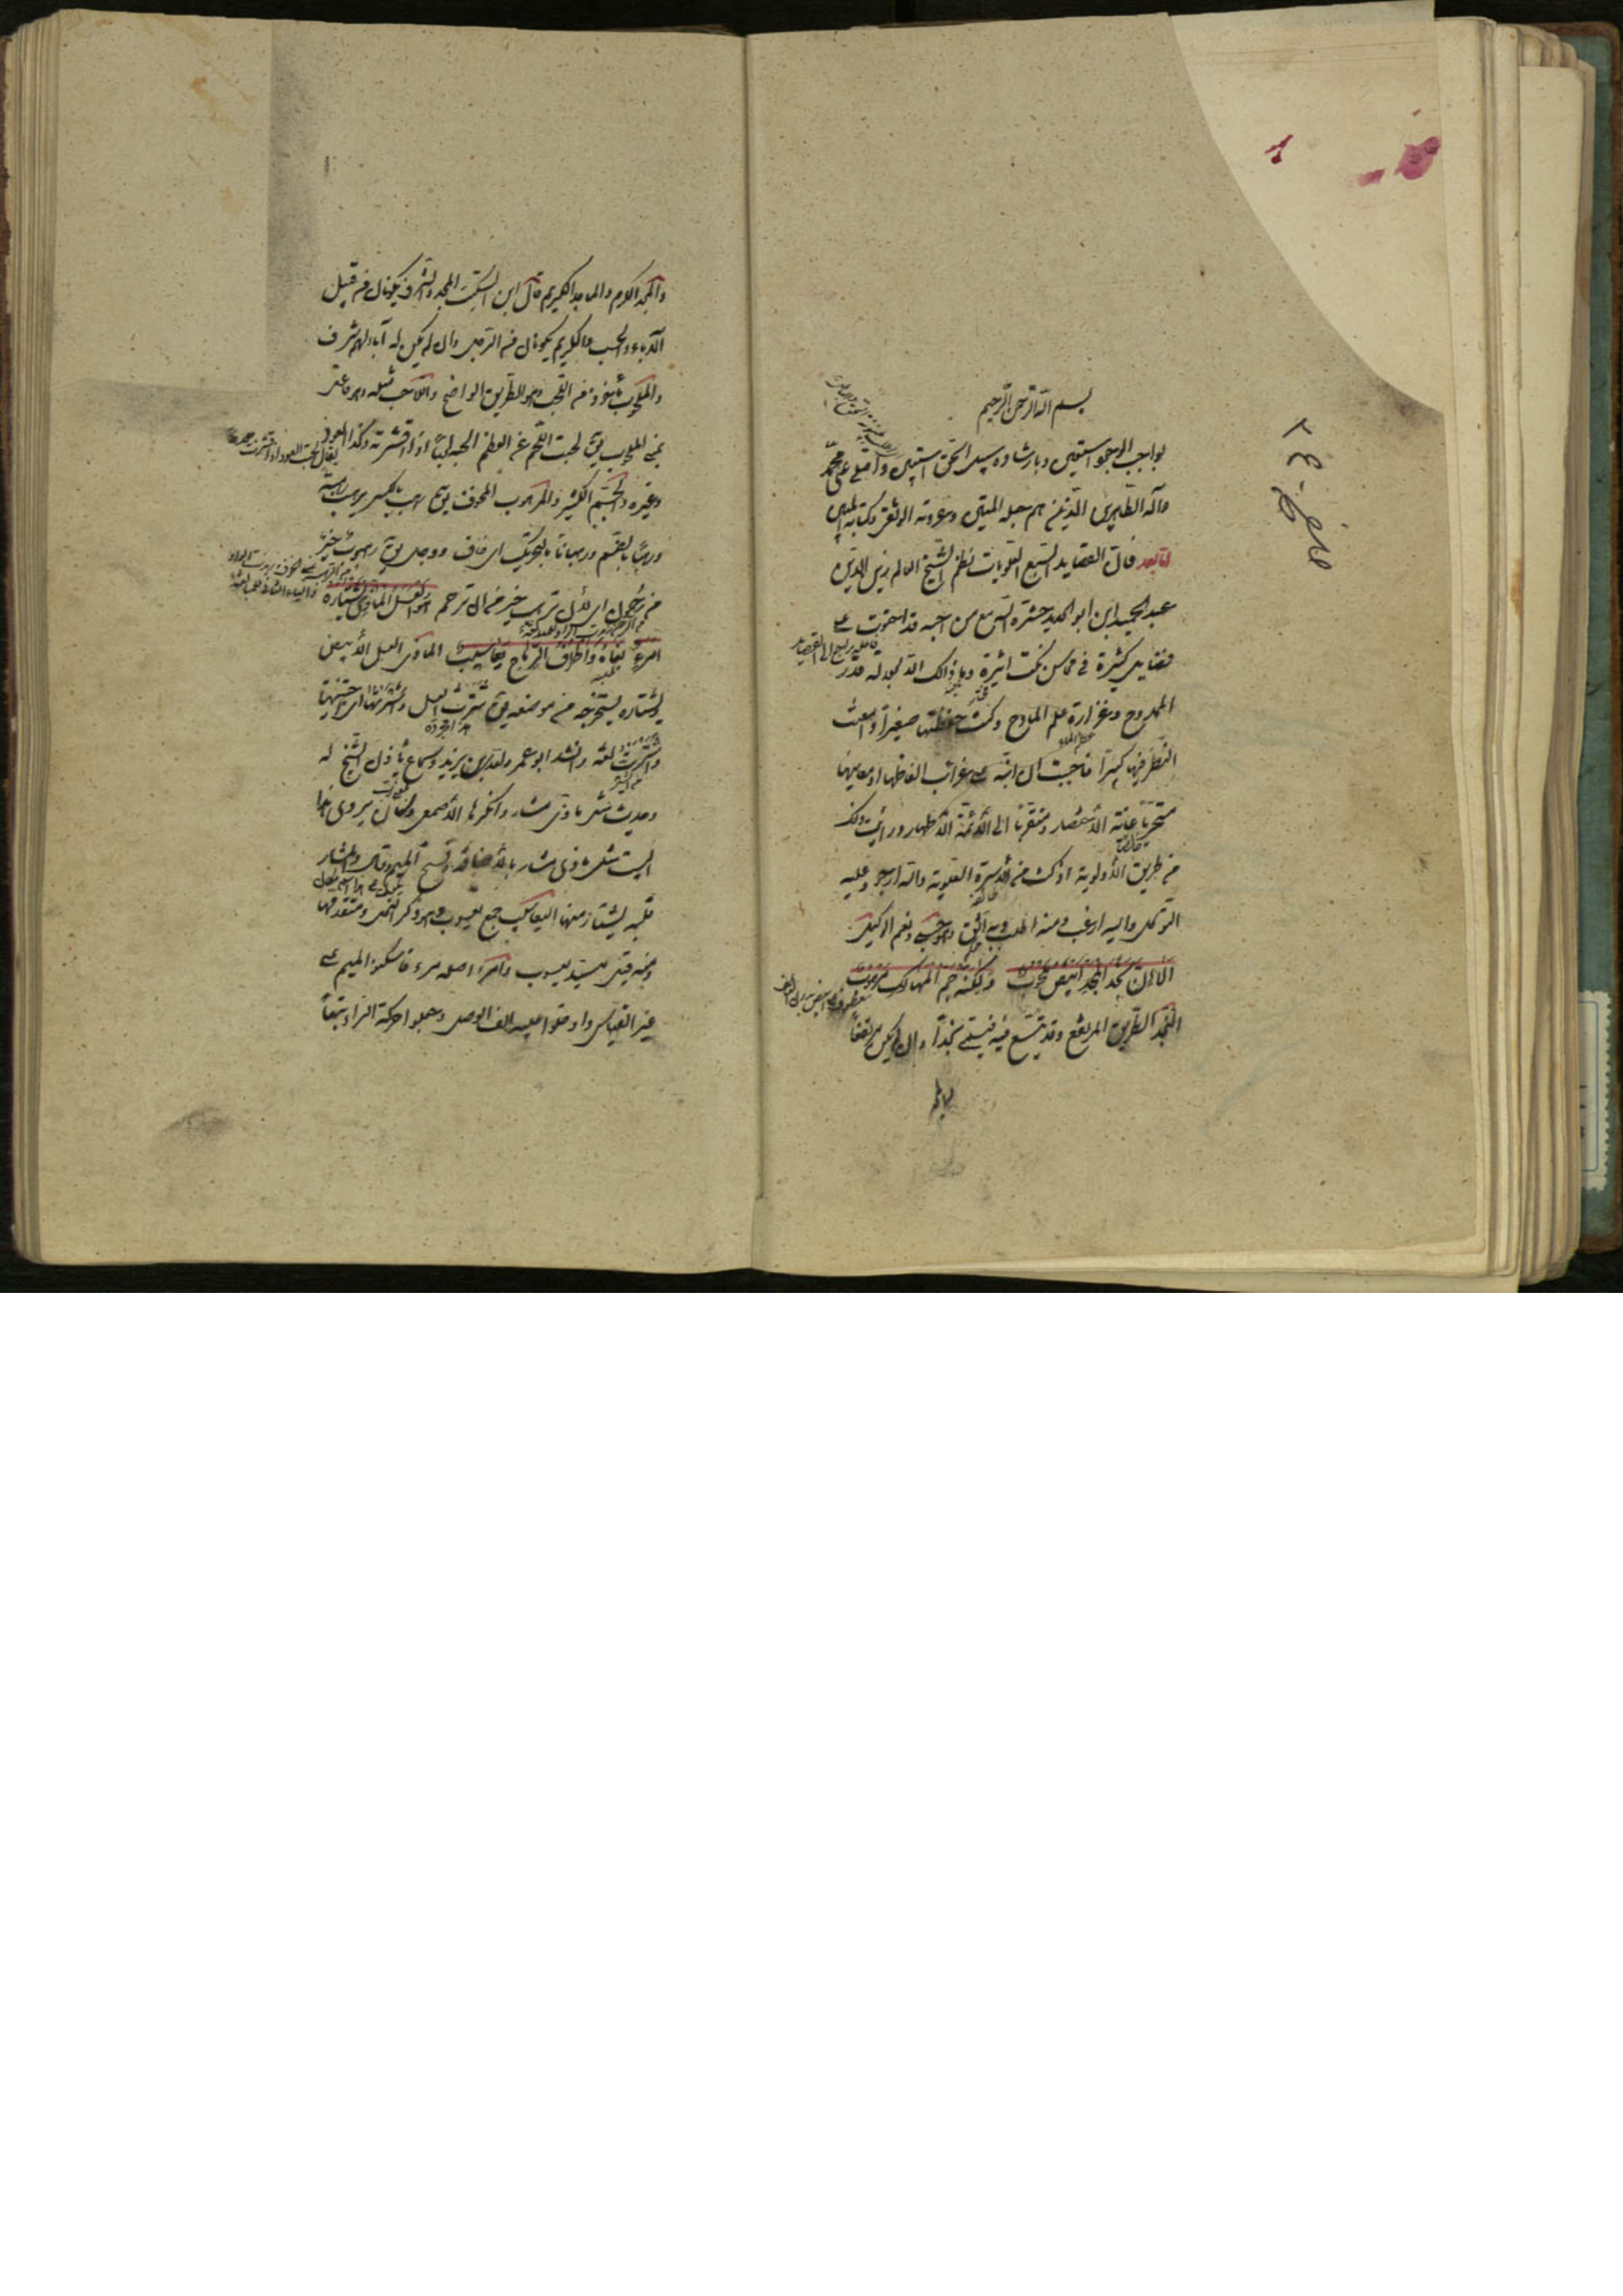 بسم الله الرحمن الرحيم
بواجب الوجود استعين وبارشاده سبيل الحق استبين واصلي على محمد
وآله الطاهرين الذينهم حبله المتين وعروته الوثقى وكتابه المبين
اما بعد فان القصايد السبع العلويات نظم الشيخ العالم زين الدين
عبد الحميد ابن ابو الحديد حشره الله مع من احبه قد استحوت على
كثيرة في محاسن نكت اثيرة وما ذلك الا لجودة قدر
الممدوح وغزارة علم المادح وكنت حفظتها صغيرا وامعنت
النظر فيها كبيرا فاحببت ان ابنه على غرائب الفاظها او معانيها
متحريا غاية الاختصار ومتقربا الى الائمة الاطهار ورايت ذلك
من طريق الاولوية اذ كنت من الاسرة العلوية والله ارجو وعليه
التوكل واليه ارغب ومنه اطلب وبه اثق وهو حسبي ونعم الوكيل
الا ان نجد المجد ابيض ملحوب ولكنه جم المهالك مرهوب
النجد الطريق المرتفع وقد يتسع فيه فيسمى نجدا وان لم يكن مرتفعا
والمجد الكرم والماجد الكريم قال ابن السكيت المجد والشرف يكونان من قبل
الآباء والحسب والكريم يكونان في الرجل وان لم يكن له آباء لهم شرف
والملحوب مأخوذ من اللحب وهو الطريق الواضح واللاحب مثله وهو فاعل
بمعنى الملحوب يق لحبت اللحم عن العظم الحبه لحبا اذا قشرته وكذا العود
وغيره والجم الكثير والمرهوب المخوف يق رهب بالكسر يرهب رهبة
ورهبا بالضم ورهبانا بالتحريك اي خاف ورجل يق رهبوت خير
من رحموت اي لان ترهب خير من ان ترحم هو العسل الماذي يشتاره
امرؤ بغاه واطراف الرماح يعاسيب الماذي العسل الابيض
يشتاره يستخرجه من موضعه يق شرت العسل واشترتها اي اجتنيتها
واشرت لغة وانشد ابو عمرو لعدي بن زيد وسماع يأذن الشيخ له
وحديث مثل ماذي مشار وانكرها الاصمعي وكان يروي هذا
البيت مثل ماذي مشار بالاضافة وفتح الميم وقال والمشار
يشتار منها اليعاسيب جمع يعسوب وهو ذكر النحل ومتقدمها
ومنه قيل للسيد يعسوب وامرؤ اصله مرء فاسكنوا الميم على
غير القياس وادخلوا عليه الف الوصل وجعلوا حركة الراء تبعا